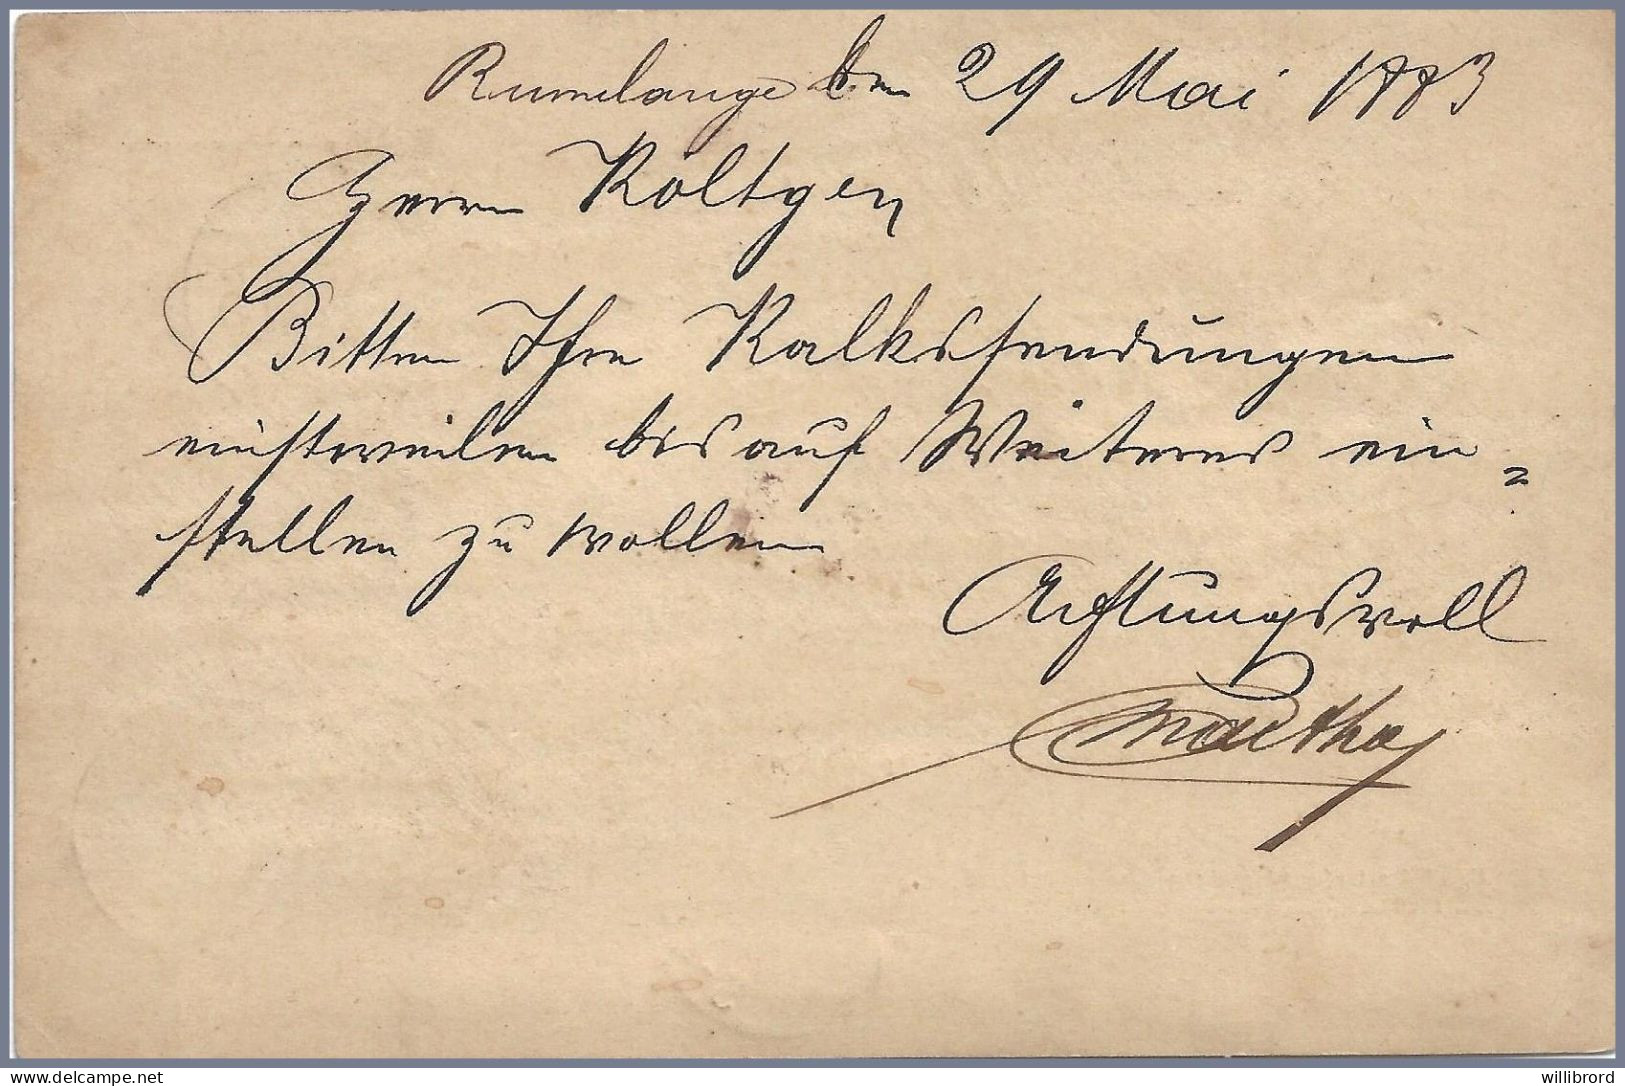 Rumelange den 29 Mai 1883
Herrn Röltgen
Bitten Ihre Kalkssendungen
einstweilen bis auf Weiteres ein=
stellen zu wollen
Achtungsvoll
delcampe.net
willibrord